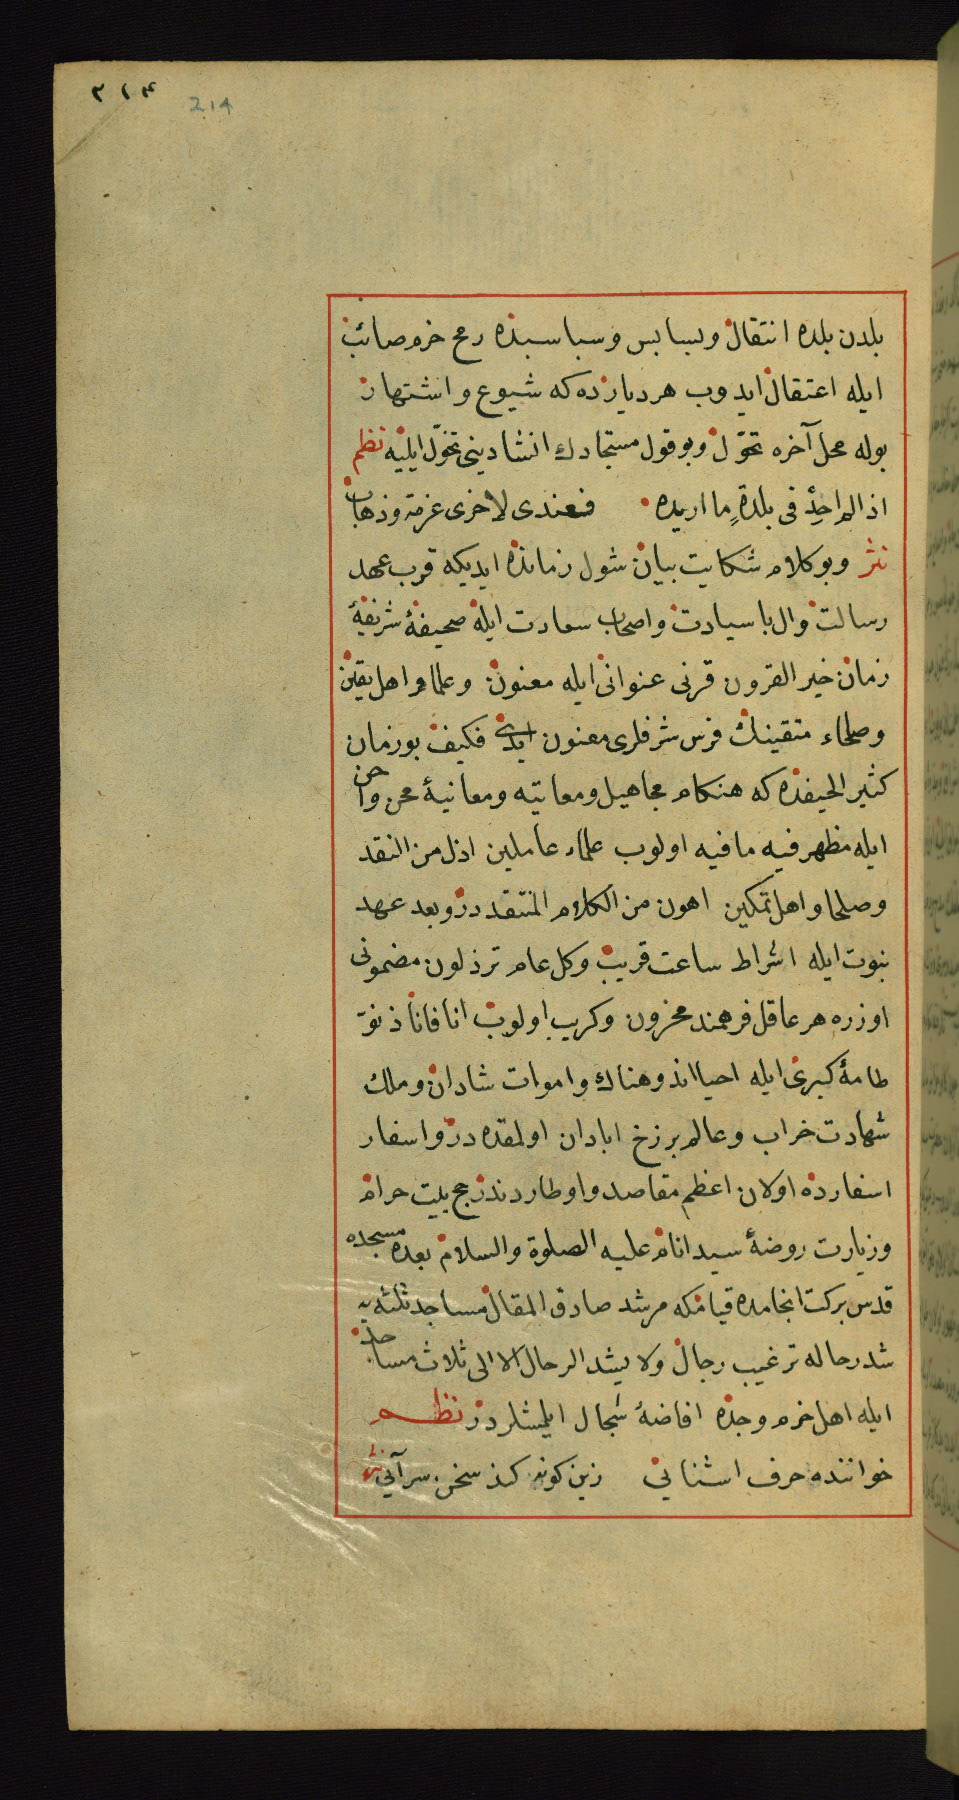 ٢١٤ 214
بلدن بلده انتقال و بسابس و سباسبده رمح خرم صائب
ايله اعتقال ايدوب هر ديارده كه شيوع و اشتهار
بوله محل آخره تحوّل و بو قول مستجادك انشاديني تخوّل ايليه نظم
اذا لم اجد في بلدةٍ ما اريده فعندي لاخرى عزمة وذهاب
نثر و بو كلام شكايت بيان شول زمانده ايديكه قرب عهد
رسالت و ال با سيادت و اصحاب سعادت ايله صحيفهٔ شريفهٔ
زمان خير القرون قرني عنواني ايله معنون و علما و اهل يقين
و صلحاء متقينك فرس شرفلري معنون ايدى فكيف بو زمان
كثير الحيفده كه هنكام مجاهيل و معاتبه و معانيهٔ محن و احن
ايله مظهر فيه ما فيه اولوب علماء عاملين اذل من النقد
و صلحا و اهل تمكين اهون من الكلام المنتقد در و بعد عهد
نبوت ايله اشراط ساعت قريب و كل عام ترذلون مضموني
اوزره هر عاقل فرهمند محزون و كريب اولوب انا فانا دنوّ
طامهٔ كبرى ايله احيا اندوهناك و اموات شادان و ملك
شهادت خراب و عالم برزخ ابادان اولمقده در و اسفار
اسفارده اولان اعظم مقاصد و اوطاردندر حج بيت حرام
و زيارت روضهٔ سيد انام عليه الصلوة و السلام بعده مسجده
قدس بركت انجامده قيامكه مرشد صادق المقال مساجد ثلثه يه
شد رحاله ترغيب رجال و لا يشد الرحال الا الى ثلاث مساجد
ايله اهل خرم و جده افاضهٔ سجال ايلمشلردر نظم
خواننده حرف اشنايي زين كونه كند سخن سرآيي نثر